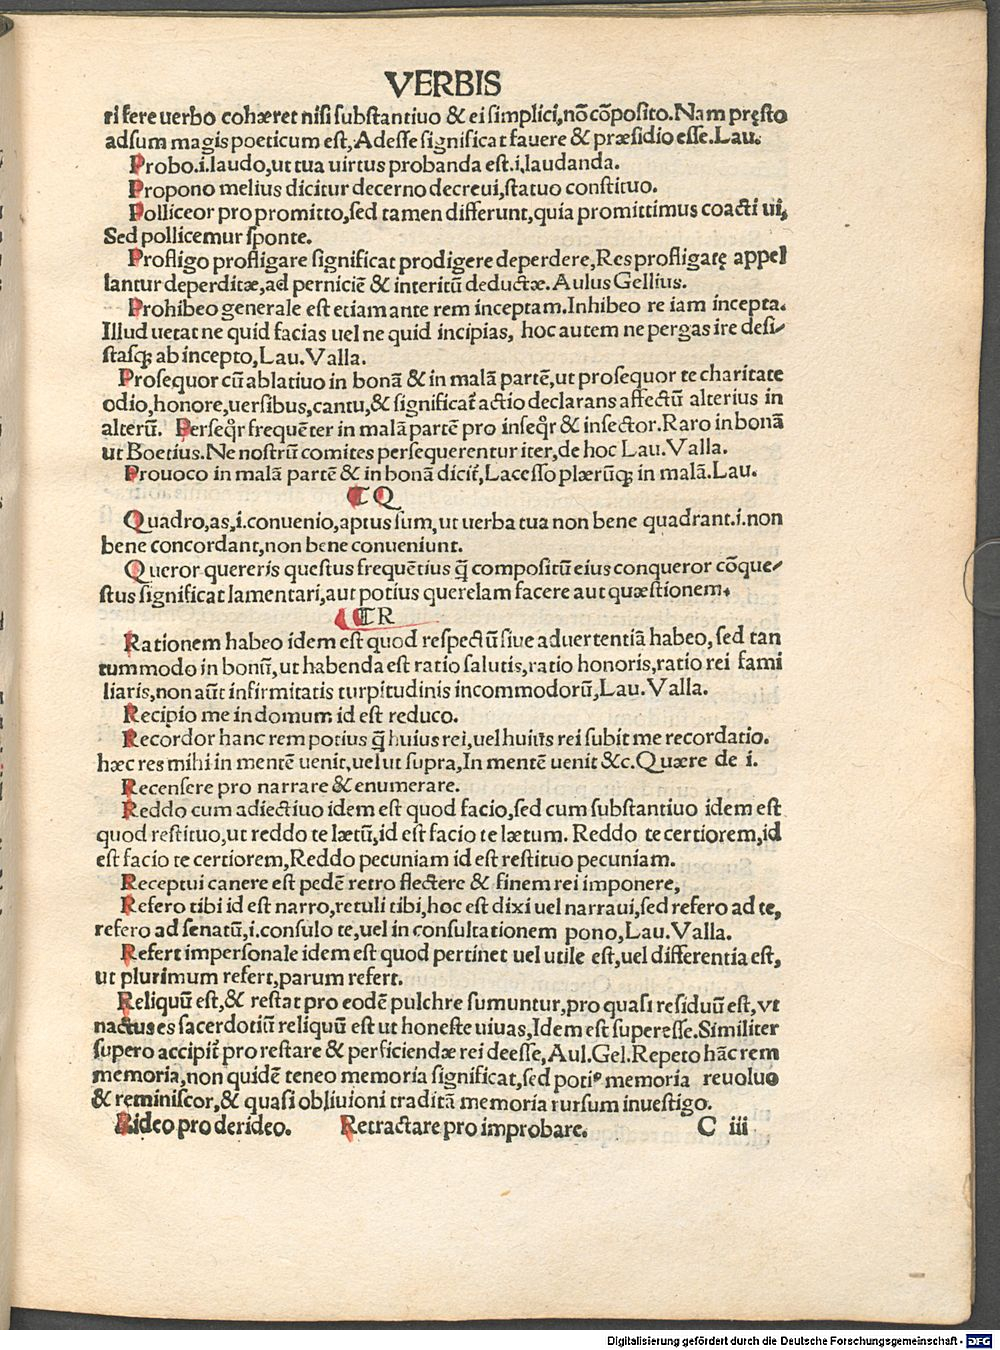 VERBIS
ri fere uerbo cohæret nisi substantiuo & ei simplici, nō cōposito. Nam pręsto
adsum magis poeticum est, Adesse significat fauere & præsidio esse. Lau.
Probo .i. laudo, ut tua uirtus probanda est .i. laudanda.
Propono melius dicitur decerno decreui, statuo constituo.
Polliceor pro promitto, sed tamen differunt, quia promittimus coacti ui,
Sed pollicemur sponte.
Profligo profligare significat prodigere deperdere, Res profligatę appel
lantur deperditæ, ad perniciē & interitū deductæ. Aulus Gellius.
Prohibeo generale est etiam ante rem inceptam. Inhibeo re iam incepta.
Illud uetat ne quid facias uel ne quid incipias, hoc autem ne pergas ire desi⸗
stasqꝫ ab incepto, Lau. Valla.
Prosequor cū ablatiuo in bonā & in malā partē, ut prosequor te charitate
odio, honore, uersibus, cantu, & significat᷑ actio declarans affectū alterius in
alterū. Perseq̄r frequēter in malā partē pro inseq̄r & insector. Raro in bonā
ut Boetius. Ne nostrū comites persequerentur iter, de hoc Lau. Valla.
Prouoco in malā partē & in bonā dicit᷑, Lacesso plærūqꝫ in malā. Lau.
¶ Q
Quadro, as, .i. conuenio, aptus sum, ut uerba tua non bene quadrant .i. non
bene concordant, non bene conueniunt.
Queror quereris questus frequētius q̄ compositū eius conqueror cōque⸗
stus significat lamentari, aut potius querelam facere aut quæstionem.
¶ R
Rationem habeo idem est quod respectū siue aduertentiā habeo, sed tan
tummodo in bonū, ut habenda est ratio salutis, ratio honoris, ratio rei fami
liaris, non aūt infirmitatis turpitudinis incommodorū, Lau. Valla.
Recipio me in domum id est reduco.
Recordor hanc rem potius q̄ huius rei, uel huius rei subit me recordatio.
hæc res mihi in mentē uenit, uel ut supra, In mentē uenit &c. Quære de i.
Recensere pro narrare & enumerare.
Reddo cum adiectiuo idem est quod facio, sed cum substantiuo idem est
quod restituo, ut reddo te lætū, id est facio te lætum. Reddo te certiorem, id
est facio te certiorem, Reddo pecuniam id est restituo pecuniam.
Receptui canere est pedē retro flectere & finem rei imponere,
Refero tibi id est narro, retuli tibi, hoc est dixi uel narraui, sed refero ad te,
refero ad senatū, .i. consulo te, uel in consultationem pono, Lau. Valla.
Refert impersonale idem est quod pertinet uel utile est, uel differentia est,
ut plurimum refert, parum refert.
Reliquū est, & restat pro eodē pulchre sumuntur, pro quasi residuū est, vt
nactus es sacerdotiū reliquū est ut honeste uiuas, Idem est superesse. Similiter
supero accipit᷑ pro restare & perficiendæ rei deesse, Aul. Gel. Repeto hāc rem
memoria, non quidē teneo memoria significat, sed potiꝰ memoria reuoluo
& reminiscor, & quasi obliuioni traditā memoria rursum inuestigo.
Rideo pro derideo. Retractare pro improbare. C iii
Digitalisierung gefördert durch die Deutsche Forschungsgemeinschaft - DFG